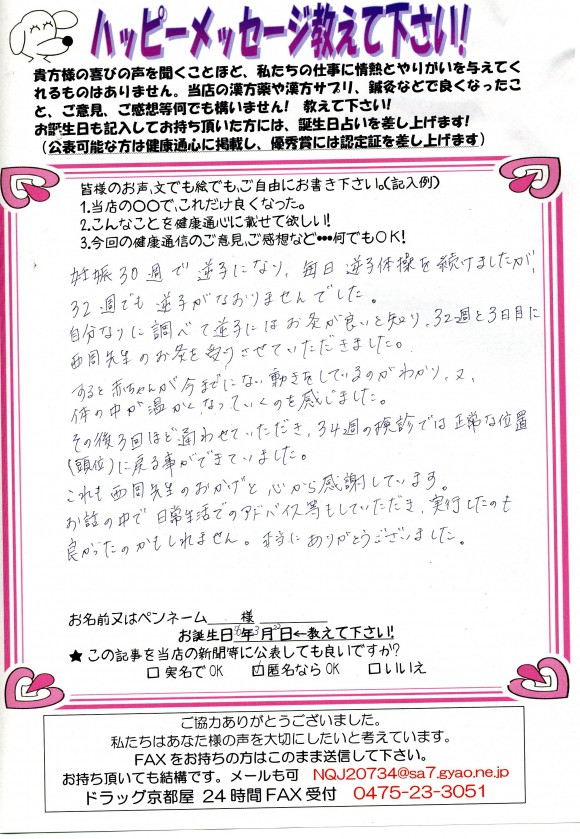 ハッピーメッセージ教えて下さい!
貴方様の喜びの声を聞くことほど、私たちの仕事に情熱とやりがいを与えてく
れるものはありません。当店の漢方薬や漢方サプリ、鍼灸などで良くなったこ
と、ご意見、ご感想等何でも構いません! 教えて下さい!
お誕生日も記入してお持ち頂いた方には、誕生日占いを差し上げます!
(公表可能な方は健康通心に掲載し、優秀賞には認定証を差し上げます)
皆様のお声、文でも絵でも、ご自由にお書き下さい。(記入例)
1.当店の〇〇で、これだけ良くなった。
2.こんなことを健康通心に載せて欲しい!
3.今回の健康通信のご意見、ご感想など•••何でもOK!
妊娠30週で逆子になり、毎日逆子体操を続けましたが、
32週でも逆子がなおりませんでした。
自分なりに調べて逆子にはお灸が良いと知り、32週と3日目に
西岡先生のお灸を受けさせていただきました。
すると赤ちゃんが今までにない動きをしているのがわかり、又、
体の中が温かくなっていくのを感じました。
その後3回ほど通わせていただき、34週の検診では正常な位置
(頭位)に戻る事ができていました。
これも西岡先生のおかげと心から感謝しています。
お話の中で日常生活でのアドバイス等もしていただき、実行したのも
良かったのかもしれません。本当にありがとうございました。
お名前又はペンネーム 様
お誕生日 年3月 日←教えて下さい!
★ この記事を当店の新聞等に公表しても良いですか?
□ 実名でOK ☑匿名ならOK □いいえ
ご協力ありがとうございました。
私たちはあなた様の声を大切にしたいと考えています。
FAXをお持ちの方はこのまま送信して下さい。
お持ち頂いても結構です。メールも可 NQJ20734@sa7.gyao.ne.jp
ドラッグ京都屋 24時間FAX受付 0475-23-3051